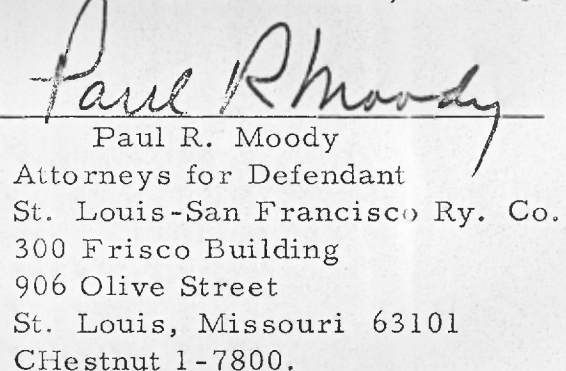 Paul R Moody
Paul R. Moody
Attorneys for Defendant
St. Louis-San Francisco Ry. Co.
300 Frisco Building
906 Olive Street
St. Louis, Missouri 63101
CHestnut 1-7800.